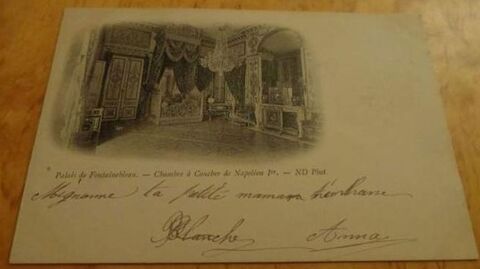 Palais de Fontainebleau. — Chambre à Coucher de Napoléon Iᵉʳ. — ND Phot.
Mignonne ta petite maman
Blanche Anna